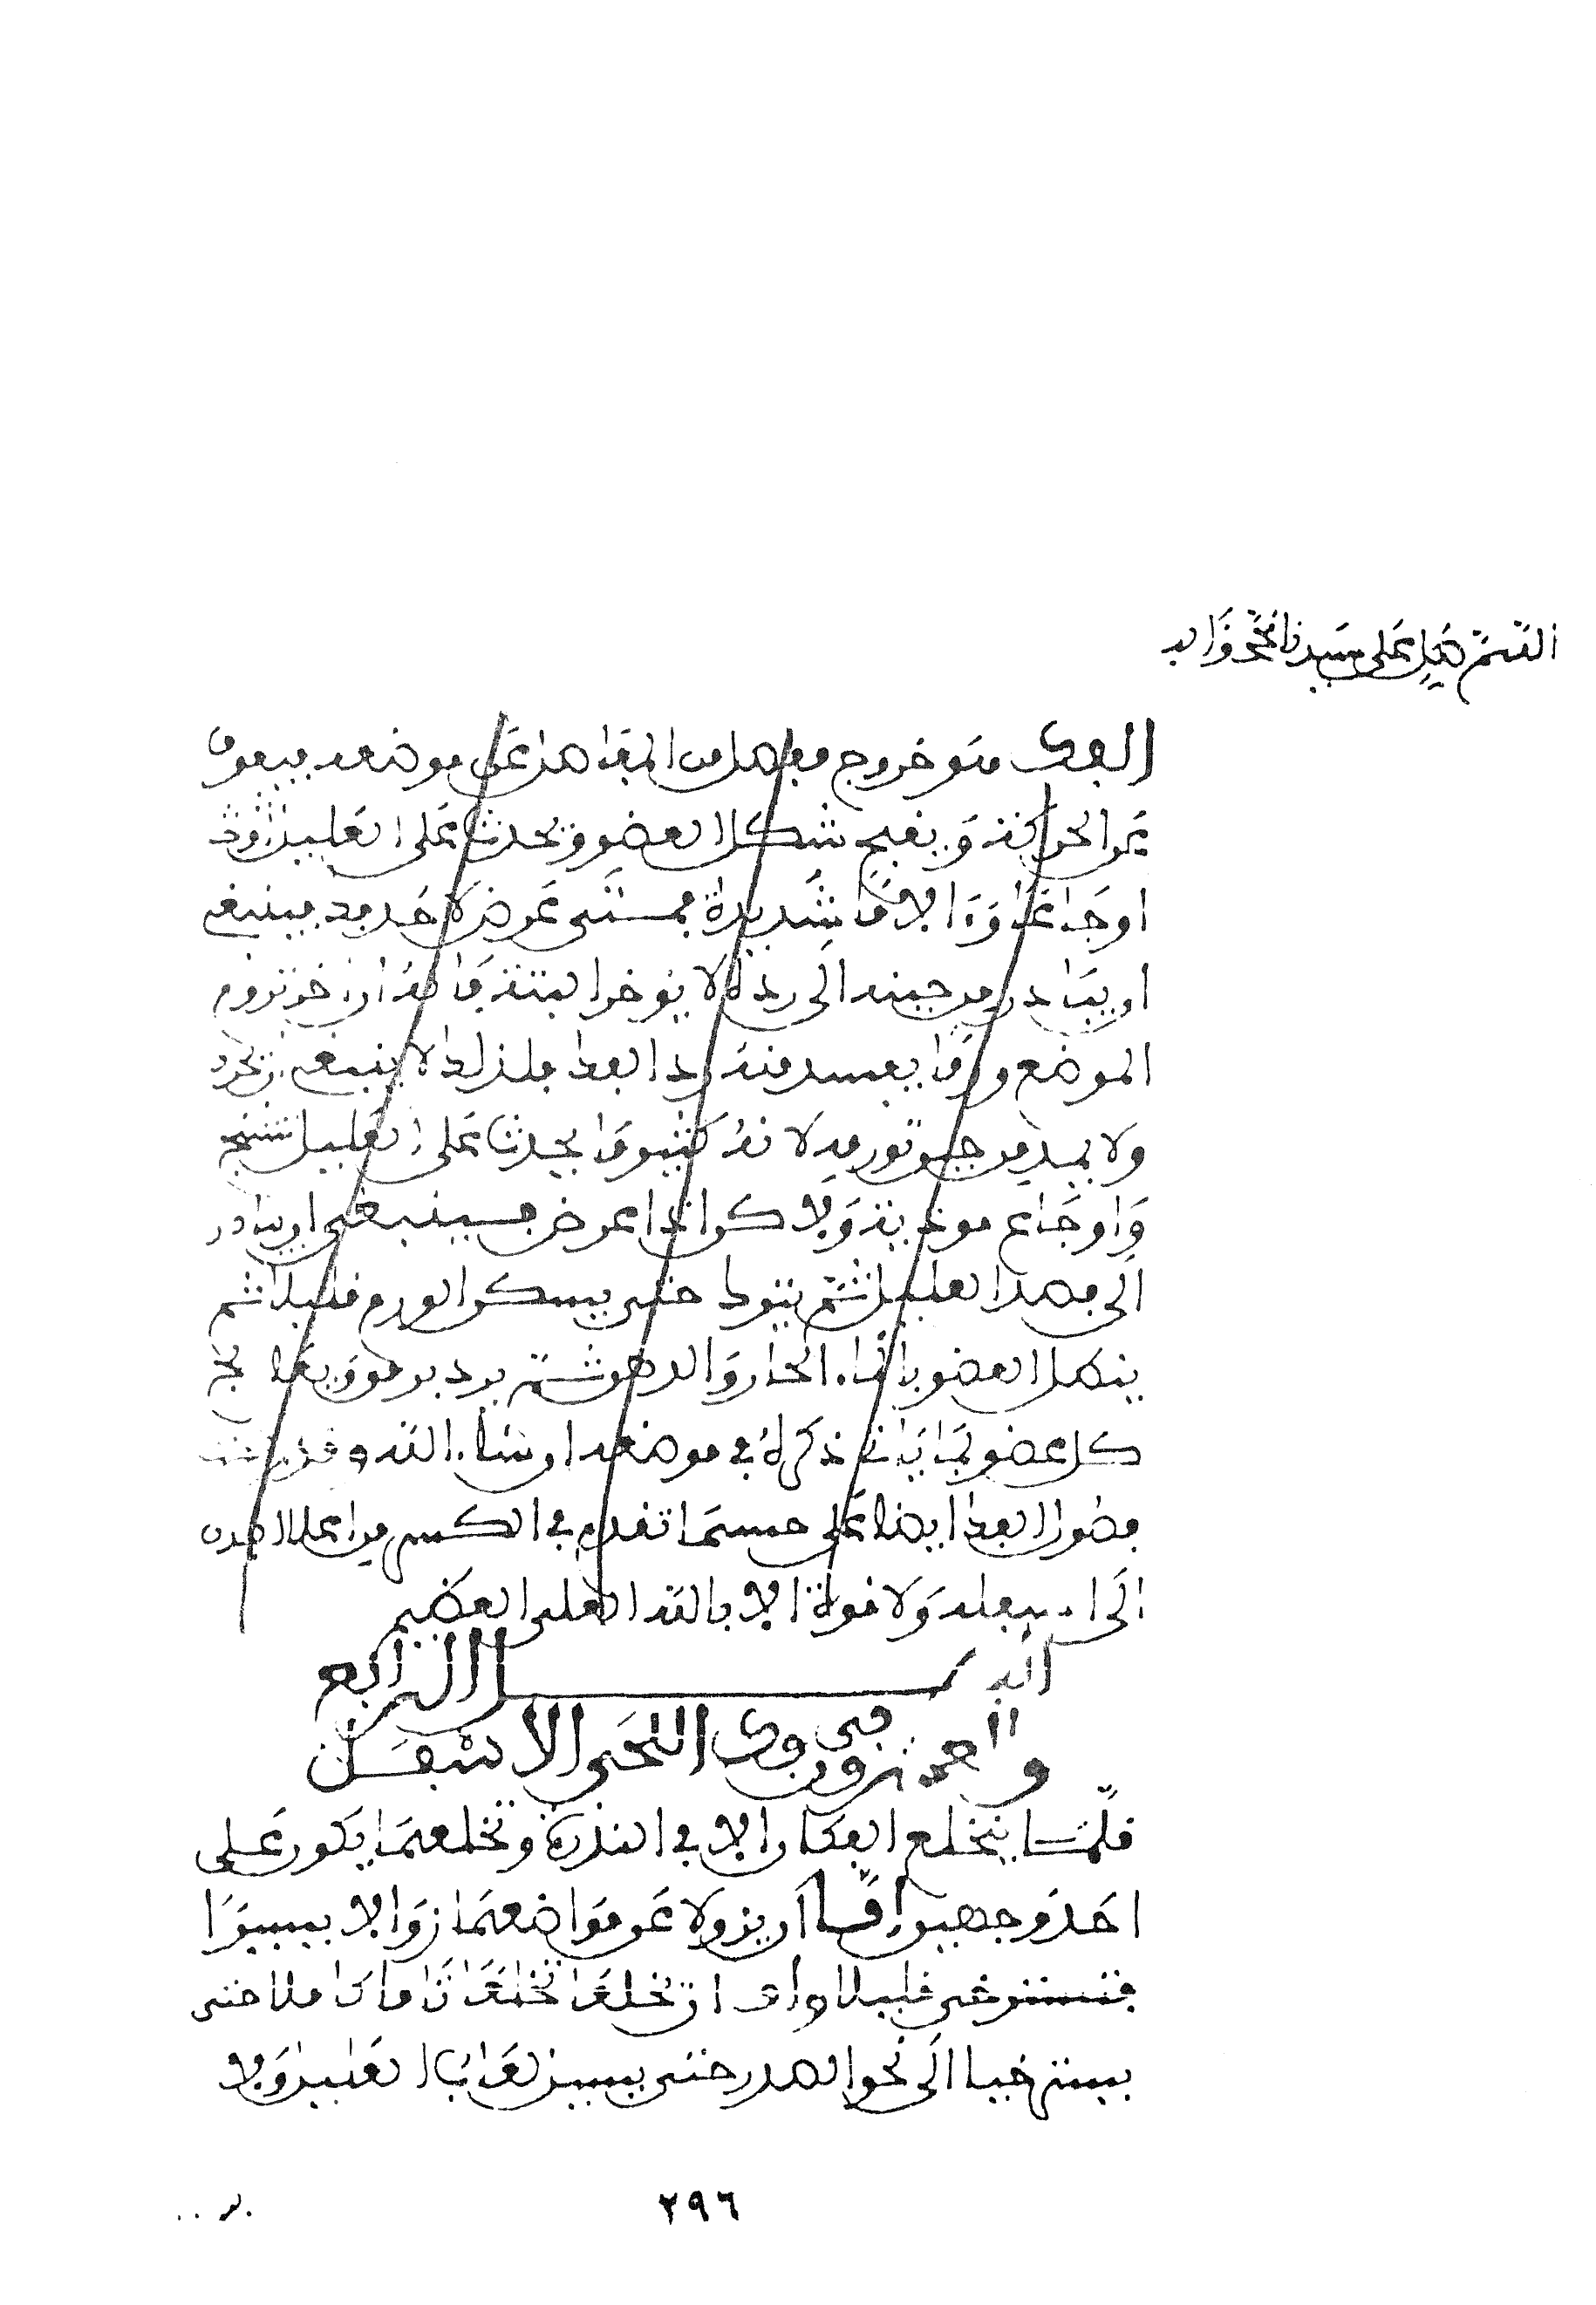 اللهم صل على سيدنا محمد وآله
الفك هو خروج مفصل من المفاصل عن موضعه فيعوق
عن الحركة ويقبح شكل العضو وتحدث على العليل
اوجاعا وءالاما شديدة فمتى عرض لاحد فك فينبغي
ان يبادر من حينه الى رده ولا يوخر البتة فانه ان اخر تورم
الموضع وربما يعسر منه رد الفك فلذلك لا ينبغي ان يحرك
ولا يمد من حين تورمه لانه كثيرا ما يحدث على العليل تشنج
واوجاع موذية ولاكن اذا عرض فينبغي ان يبادر
الى فصد العليل ثم يترك حتى يسكن الورم قليلا ثم
ينطل العضو بالماء الحار والدهن ثم يرد برفق ويعالج
كل عضو بما ياتي ذكره في موضعه ان شاء الله وقد رتبت
فصول الفك ايضا على حسب ما تقدم في الكسر من اعلا البدن
الى اسفله ولا قوة الا بالله العلي العظيم
الفصل الرابع
والعشرون في فك اللحى الاسفل
قلما ينخلع الفكان الا في الندرة وتخلعهما يكون على
احد وجهين اما ان يزولا عن مواضعهما زوالا يسيرا
فتسترخي قليلا واما ان تخلعا تخلعا تاما كاملا حتى
يسترخيا الى نحو الصدر حتى يسيل لعاب العليل ولا
٢٩٦